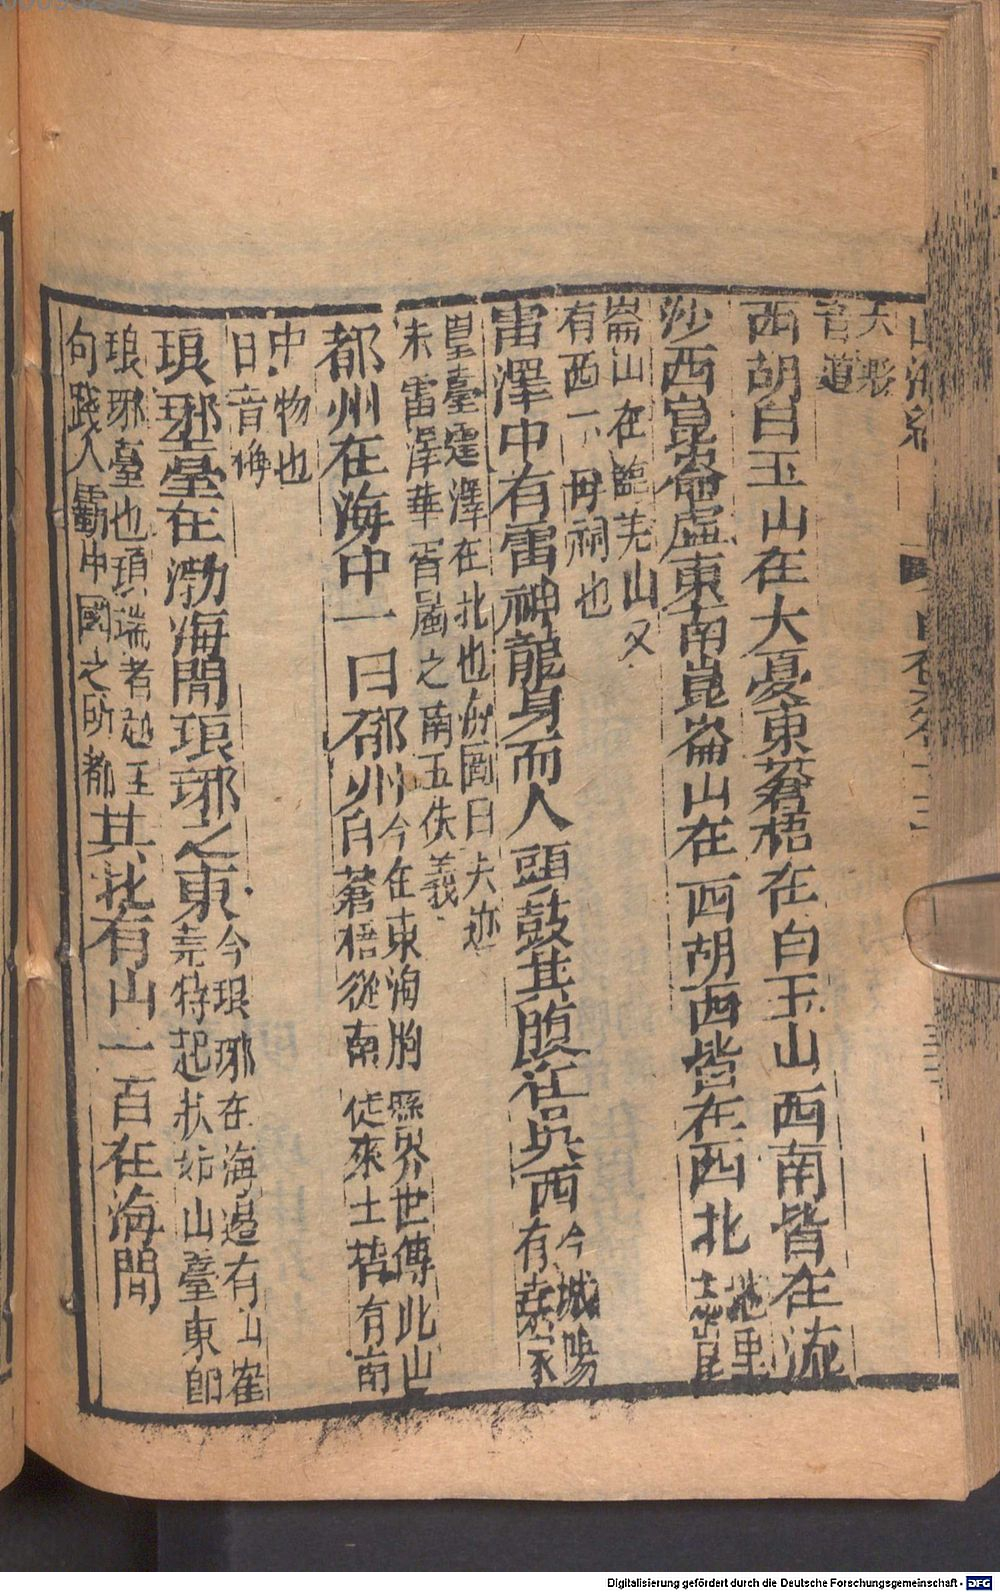 山海經
大彤
音道
西胡白玉山在大憂東蒼梧在白玉山西南皆在流
沙西崑崙虛東南崑崙山在西胡西皆在西北地里
志昆
崙山在臨羌山又
有西王母祠也
雷澤中有雷神龍身而人頭鼓其腹在吳西今城陽
有堯冢
皇臺遷澤在北也河圖曰夫迹
未雷澤華胥屬之南五伏羲
都州在海中一曰郁州今在東海朐縣界世傳此山
自蒼梧從南徒來士皆有南
中物也
曰音侮
琅琊臺在渤海間琅邪之東今琅琊在海邊有山嶵
嶤特起狀如山臺東卽
琅琊臺也頊瑞者越王
句踐入霸中國之所都其北有山一百在海間
00095256
Digitalisierung gefördert durch die Deutsche Forschungsgemeinschaft - DFG